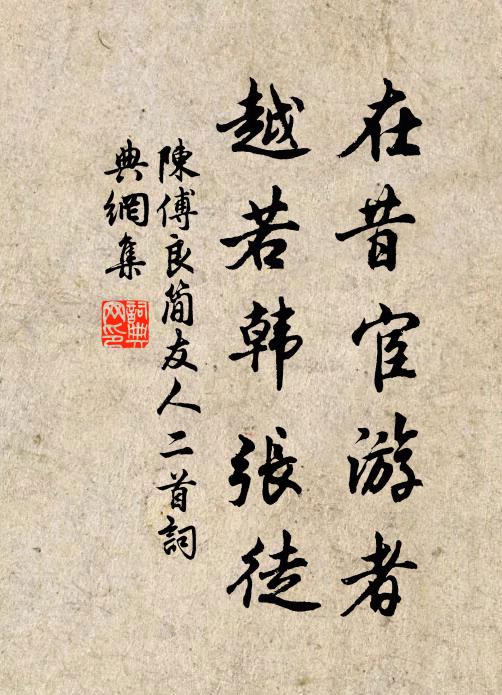 在昔宦游者
越若韩張徒
陳傅良简友人二首詞
典網集
詞典网印